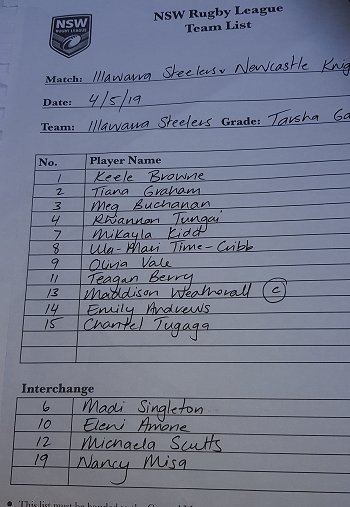 NSW Rugby League
Team List
NSW
RUGBY LEAGUE
Match: Illawarra Steelers v Newcastle Knig
Date: 4/5/19
Team: Illawarra Steelers Grade: Tarsha Ga
No. Player Name
1 Keele Browne
2 Tiana Graham
3 Meg Buchanan
4 Rhiannon Tungai
7 Mikayla Kidd
8 Ula-Mari Time-Cribb
9 Olivia Vale
11 Teagan Berry
13 Maddison Weatherall C
14 Emily Andrews
15 Chantel Tugaga
Interchange
6 Madi Singleton
10 Eleni Amone
12 Michaela Scutts
19 Nancy Misa
• This list must be handed to the